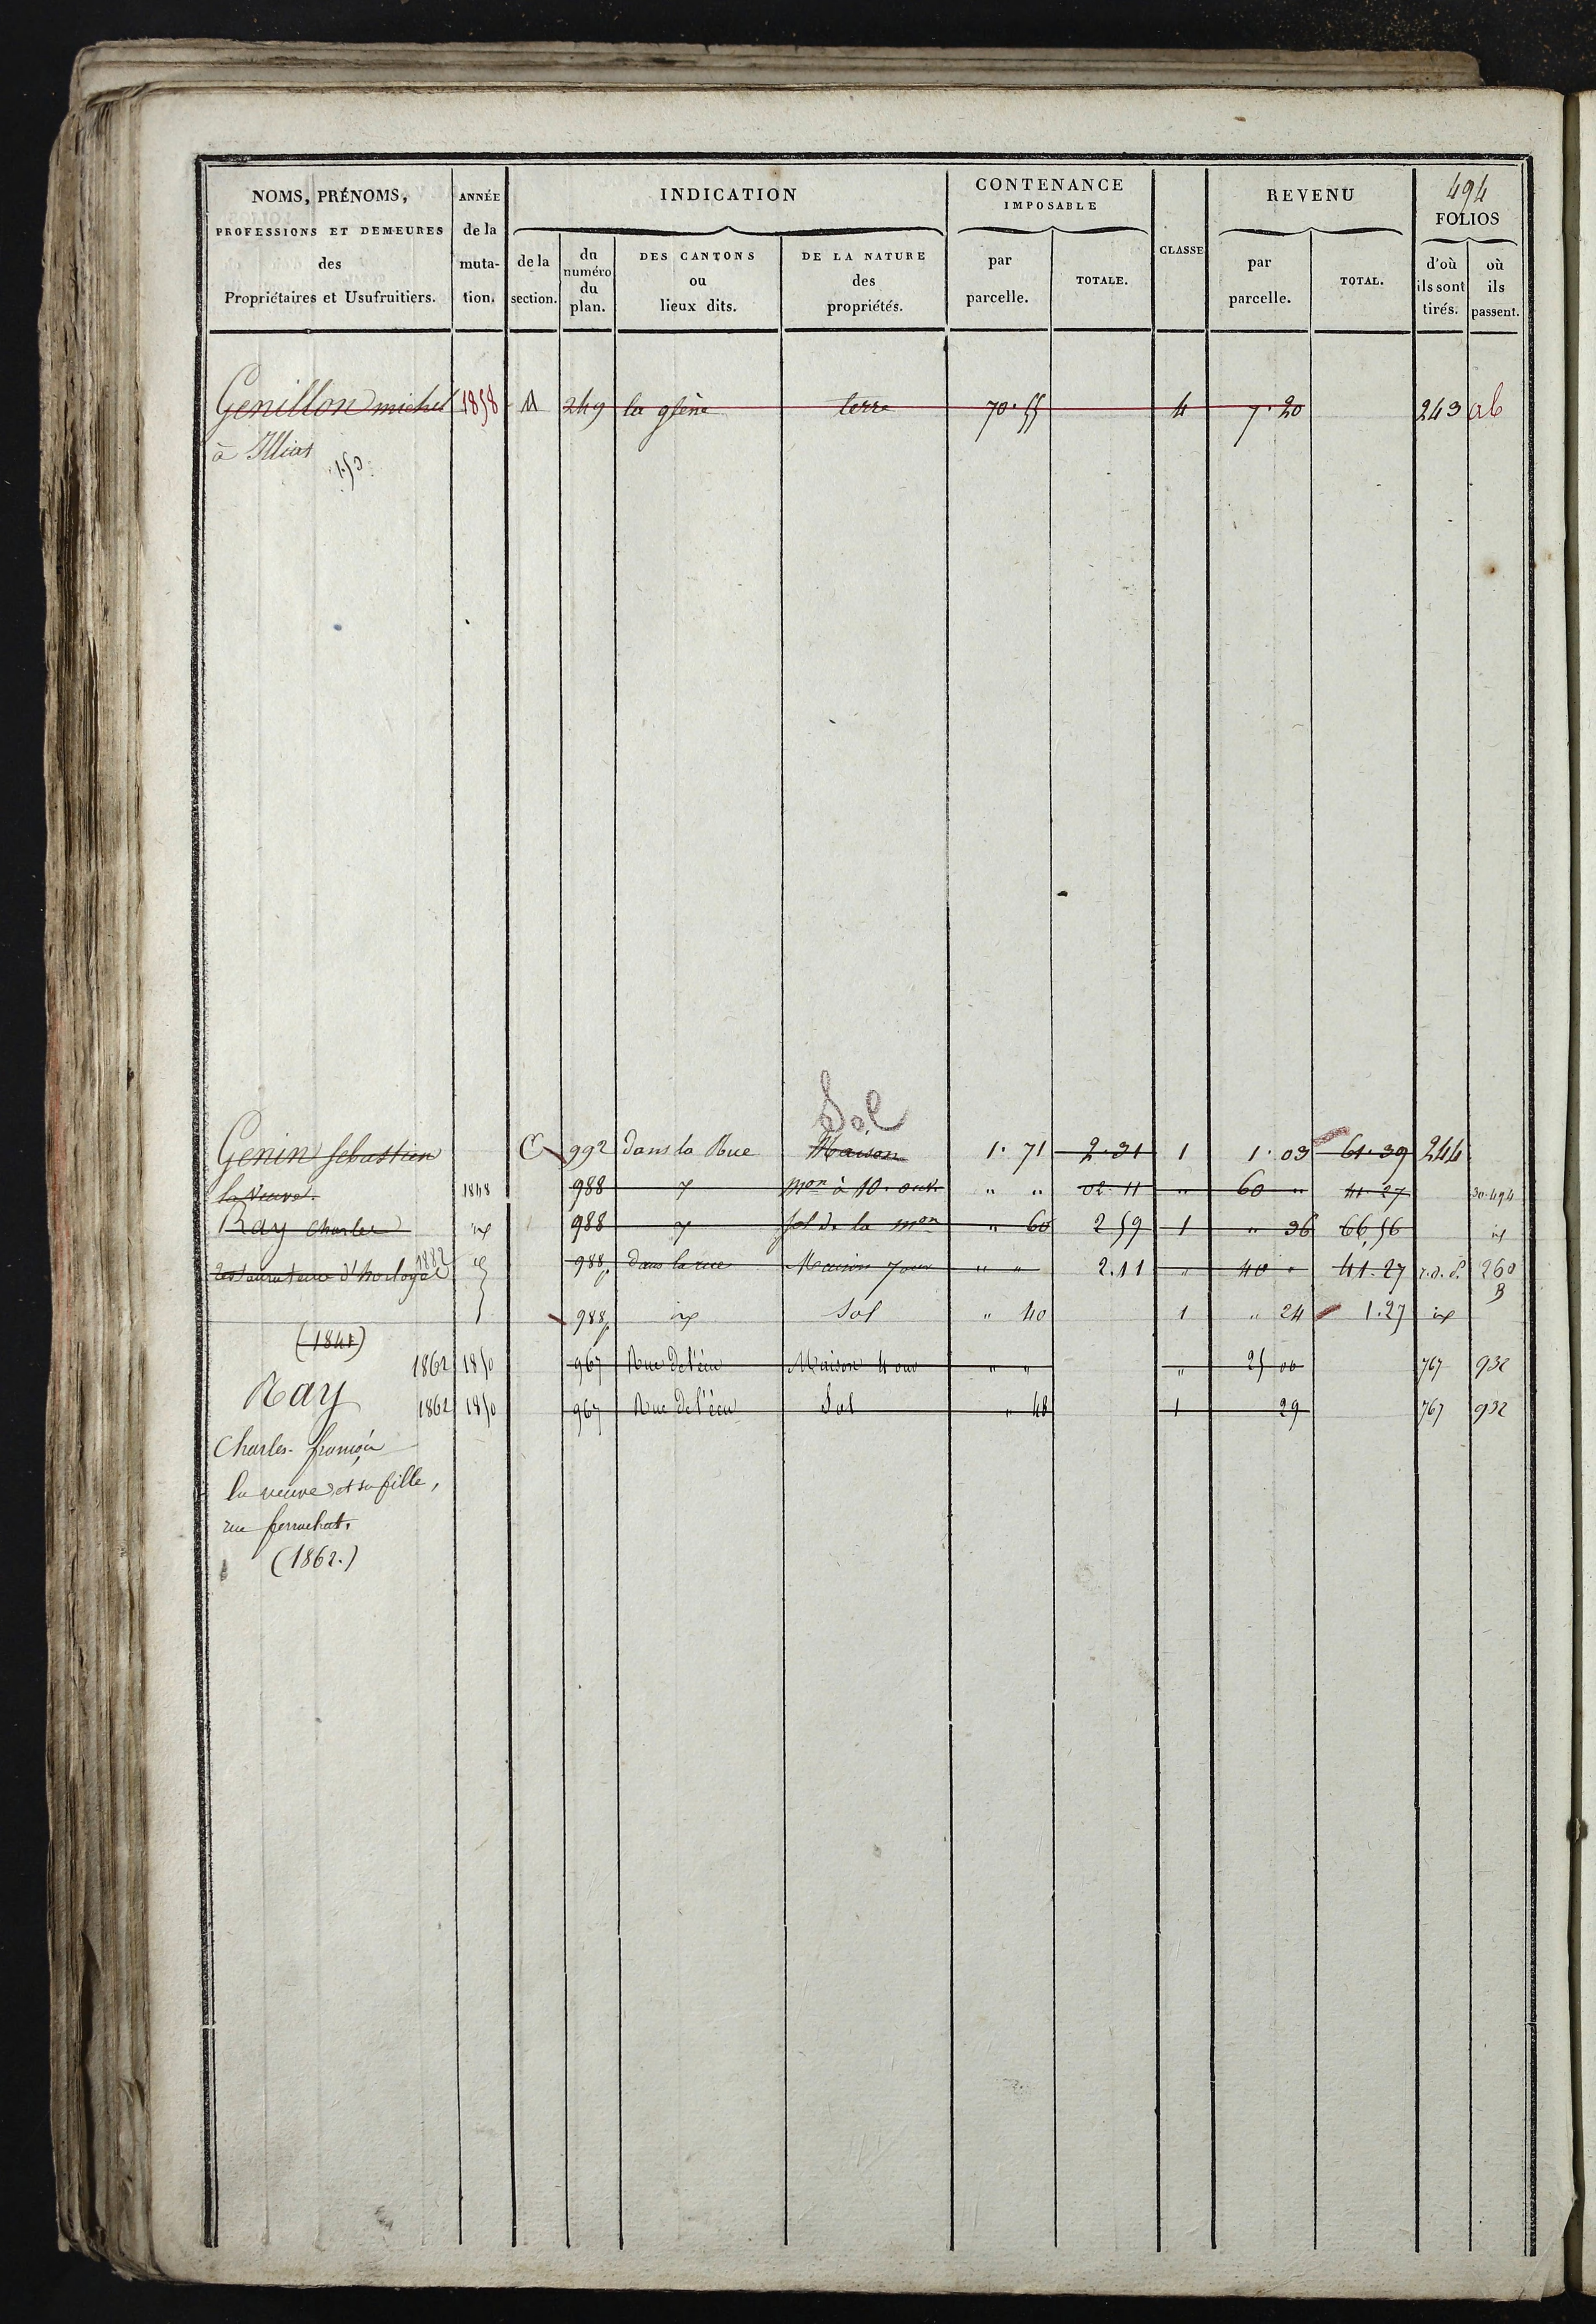 494
NOMS, PRÉNOMS, PROFESSIONS ET DEMEURES des Propriétaires et Usufruitiers.
ANNÉE de la muta-tion.
INDICATION
de la section.
du numéro du plan.
DES CANTONS ou lieux dits.
DE LA NATURE des propriétés.
CONTENANCE IMPOSABLE
par parcelle.
TOTALE.
CLASSE
REVENU
par parcelle.
TOTAL.
FOLIOS
d'où ils sont tirés.
où ils passent.
Genillon michel 1858 A 249 la glène terre 70.55 4 7.20 243 ab
à Illiat
Sol
Genin Sebastien C 992 Dans la Rue Maison 1.71 2.31 1 1.03 61.39 244
la Veuve. 1848 988 mon à 10. ouv. " " 02.11 " 60 " 41.27 494
Ray Charles 988 sol de la mon " 60 2 59 1 " 36 66,56
restaurateur d'horloges 1882 988p Dans la rue Maison 7 ouv " " 2.11 " 40 " 41.27 r.d.d. 260 B
988p Sol " 40 1 " 24 1.27
(1841)
1862 1850 967 Rue de l'écu Maison 4 ouv " " " 25 00 767 932
Ray
1862 1850 967 Rue de l'écu Sol " 48 1 29 767 932
Charles-françois
la veuve et sa fille,
rue perrachat.
(1862.)